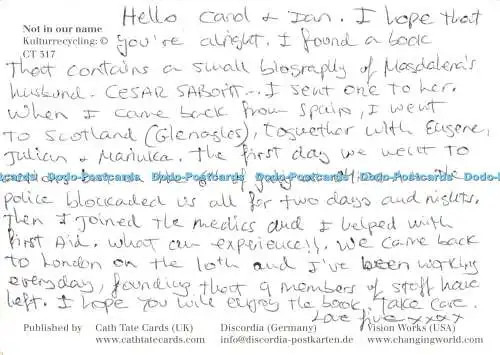 Not in our name
Kulturrecycling: ©
CT 517
Hello Carol & Ian. I hope that
you're alright. I found a book
That contains a small biography of Magdalena's
husband - CESAR
I sent one to her.
When I came back from Spain, I went
to Scotland (Gleneagles), toguether with Eugene,
Julian & Marinka. The first day we went to
Dodo-Postcards Dodo-Postcards Dodo-Postcards Dodo-Postcards
police blockaded us all for two days and nights.
Then I joined the medics and I helped with
first Aid. What an experience!!. We came back
to London on the 10th and I've been working
everyday, founding that 9 members of staff have
left. I hope you will enjoy the book, take care.
Love
xxxx
Published by
Cath Tate Cards (UK)
www.cathtatecards.com
Discordia (Germany)
info@discordia-postkarten.de
Vision Works (USA)
www.changingworld.com